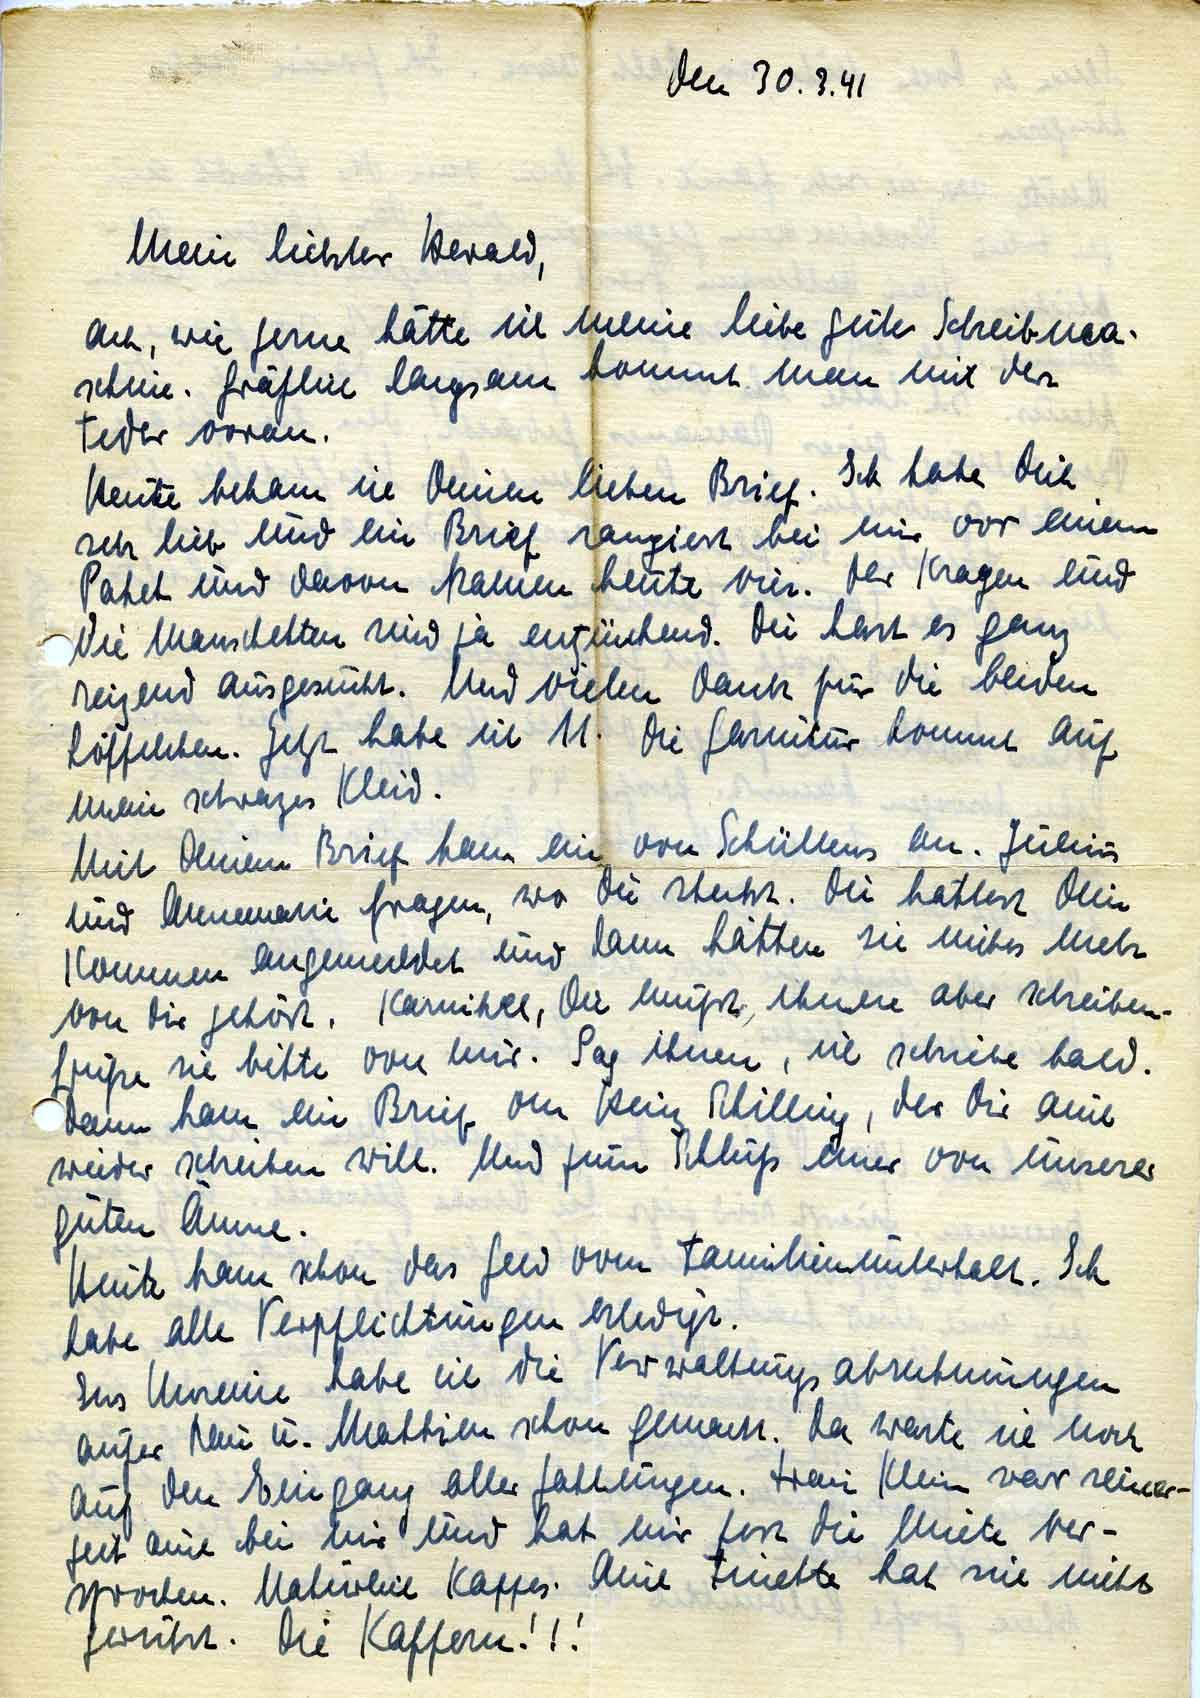 Den 30.3.41
Mein liebster Herald,
ach, wie gerne hätte ich meine liebe gute Schreibma-
schine. Gräßlich langsam kommt man mit der
Feder voran.
Heute bekam ich Deinen lieben Brief. Ich habe Dich
sehr lieb und ein Brief rangiert bei mir vor einem
Paket und davon kamen heute vier. Der Kragen und
die Manschetten sind ja entzückend. Du hast es ganz
reizend ausgesucht. Und vielen Dank für die beiden
Löffelchen. Jetzt habe ich 11. Die Garnitur kommt auf
mein schwazes Kleid.
Mit Deinem Brief kam ein von Schüllers an. Julius
und Annemarie fragen, wo Du steckst. Du hattest Dein
Kommen angemeldet und dann hätten sie nichts mehr
von Dir gehört. Karnikel, Du mußt ihnen aber schreiben.
Grüße sie bitte von mir. Sag ihnen, ich schreibe bald.
Dann kam ein Brief von Heinz Schilling, der Dir auch
wieder schreiben will. Und zum Schluß einer von unserer
guten Änne.
Heute kam schon das Geld vom Familienunterhalt. Ich
habe alle Verpflichtungen erledigt.
Ins Unreine habe ich die Verwaltungsabrechnungen
außer u. schon gemacht. Da warte ich noch
auf den Eingang aller Zahlungen. Frau Klein war seiner-
zeit auch bei mir und hat mir fest die Miete ver-
sprochen. Natürlich Kappes. Auch hat sich nicht
gerührt. Die Kaffern!!!